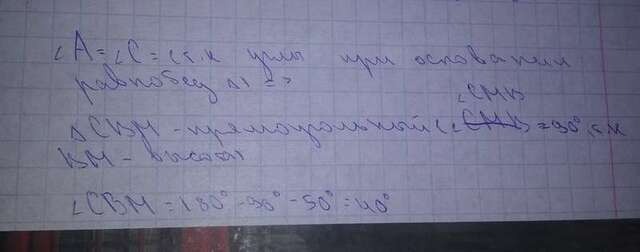 ∠A = ∠C = (т.к углы при основании
равнобед △) =>
∠CMB
△CBM - прямоугольный (∠ = 90°, т.к
BM - высота)
∠CBM = 180° - 90° - 50° = 40°